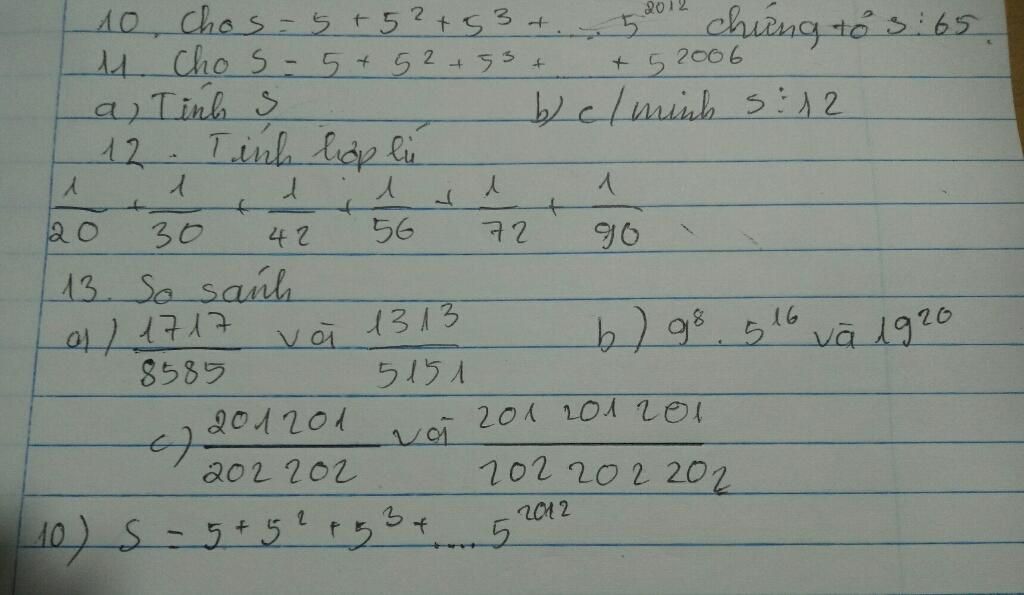 10. Cho S = 5 + 5² + 5³ + ... 5²⁰¹² chứng tỏ S ⋮ 65.
11. Cho S = 5 + 5² + 5³ + ... + 5²⁰⁰⁶
a) Tính S b) c/minh S ⋮ 12
12. Tính hợp lí
1/20 + 1/30 + 1/42 + 1/56 + 1/72 + 1/90
13. So sánh
a) 1717/8585 và 1313/5151 b) 9⁸ . 5¹⁶ và 19²⁰
c) 201201/202202 và 201201201/202202202
10) S = 5 + 5² + 5³ + .... 5²⁰¹²